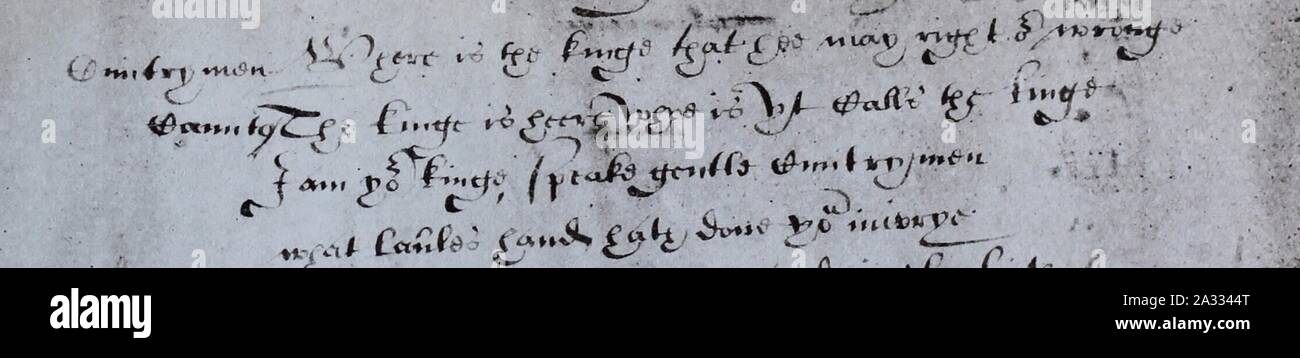 Cuntrymen Where is the kinge that hee may right or wronge
Canutus The kinge is heere, whoe is yt Calls the kinge
I am yor kinge, speake gentle Cuntrymen
what lawles hand hath done you iniurye
alamy
Image ID: 2A3344T
www.alamy.com